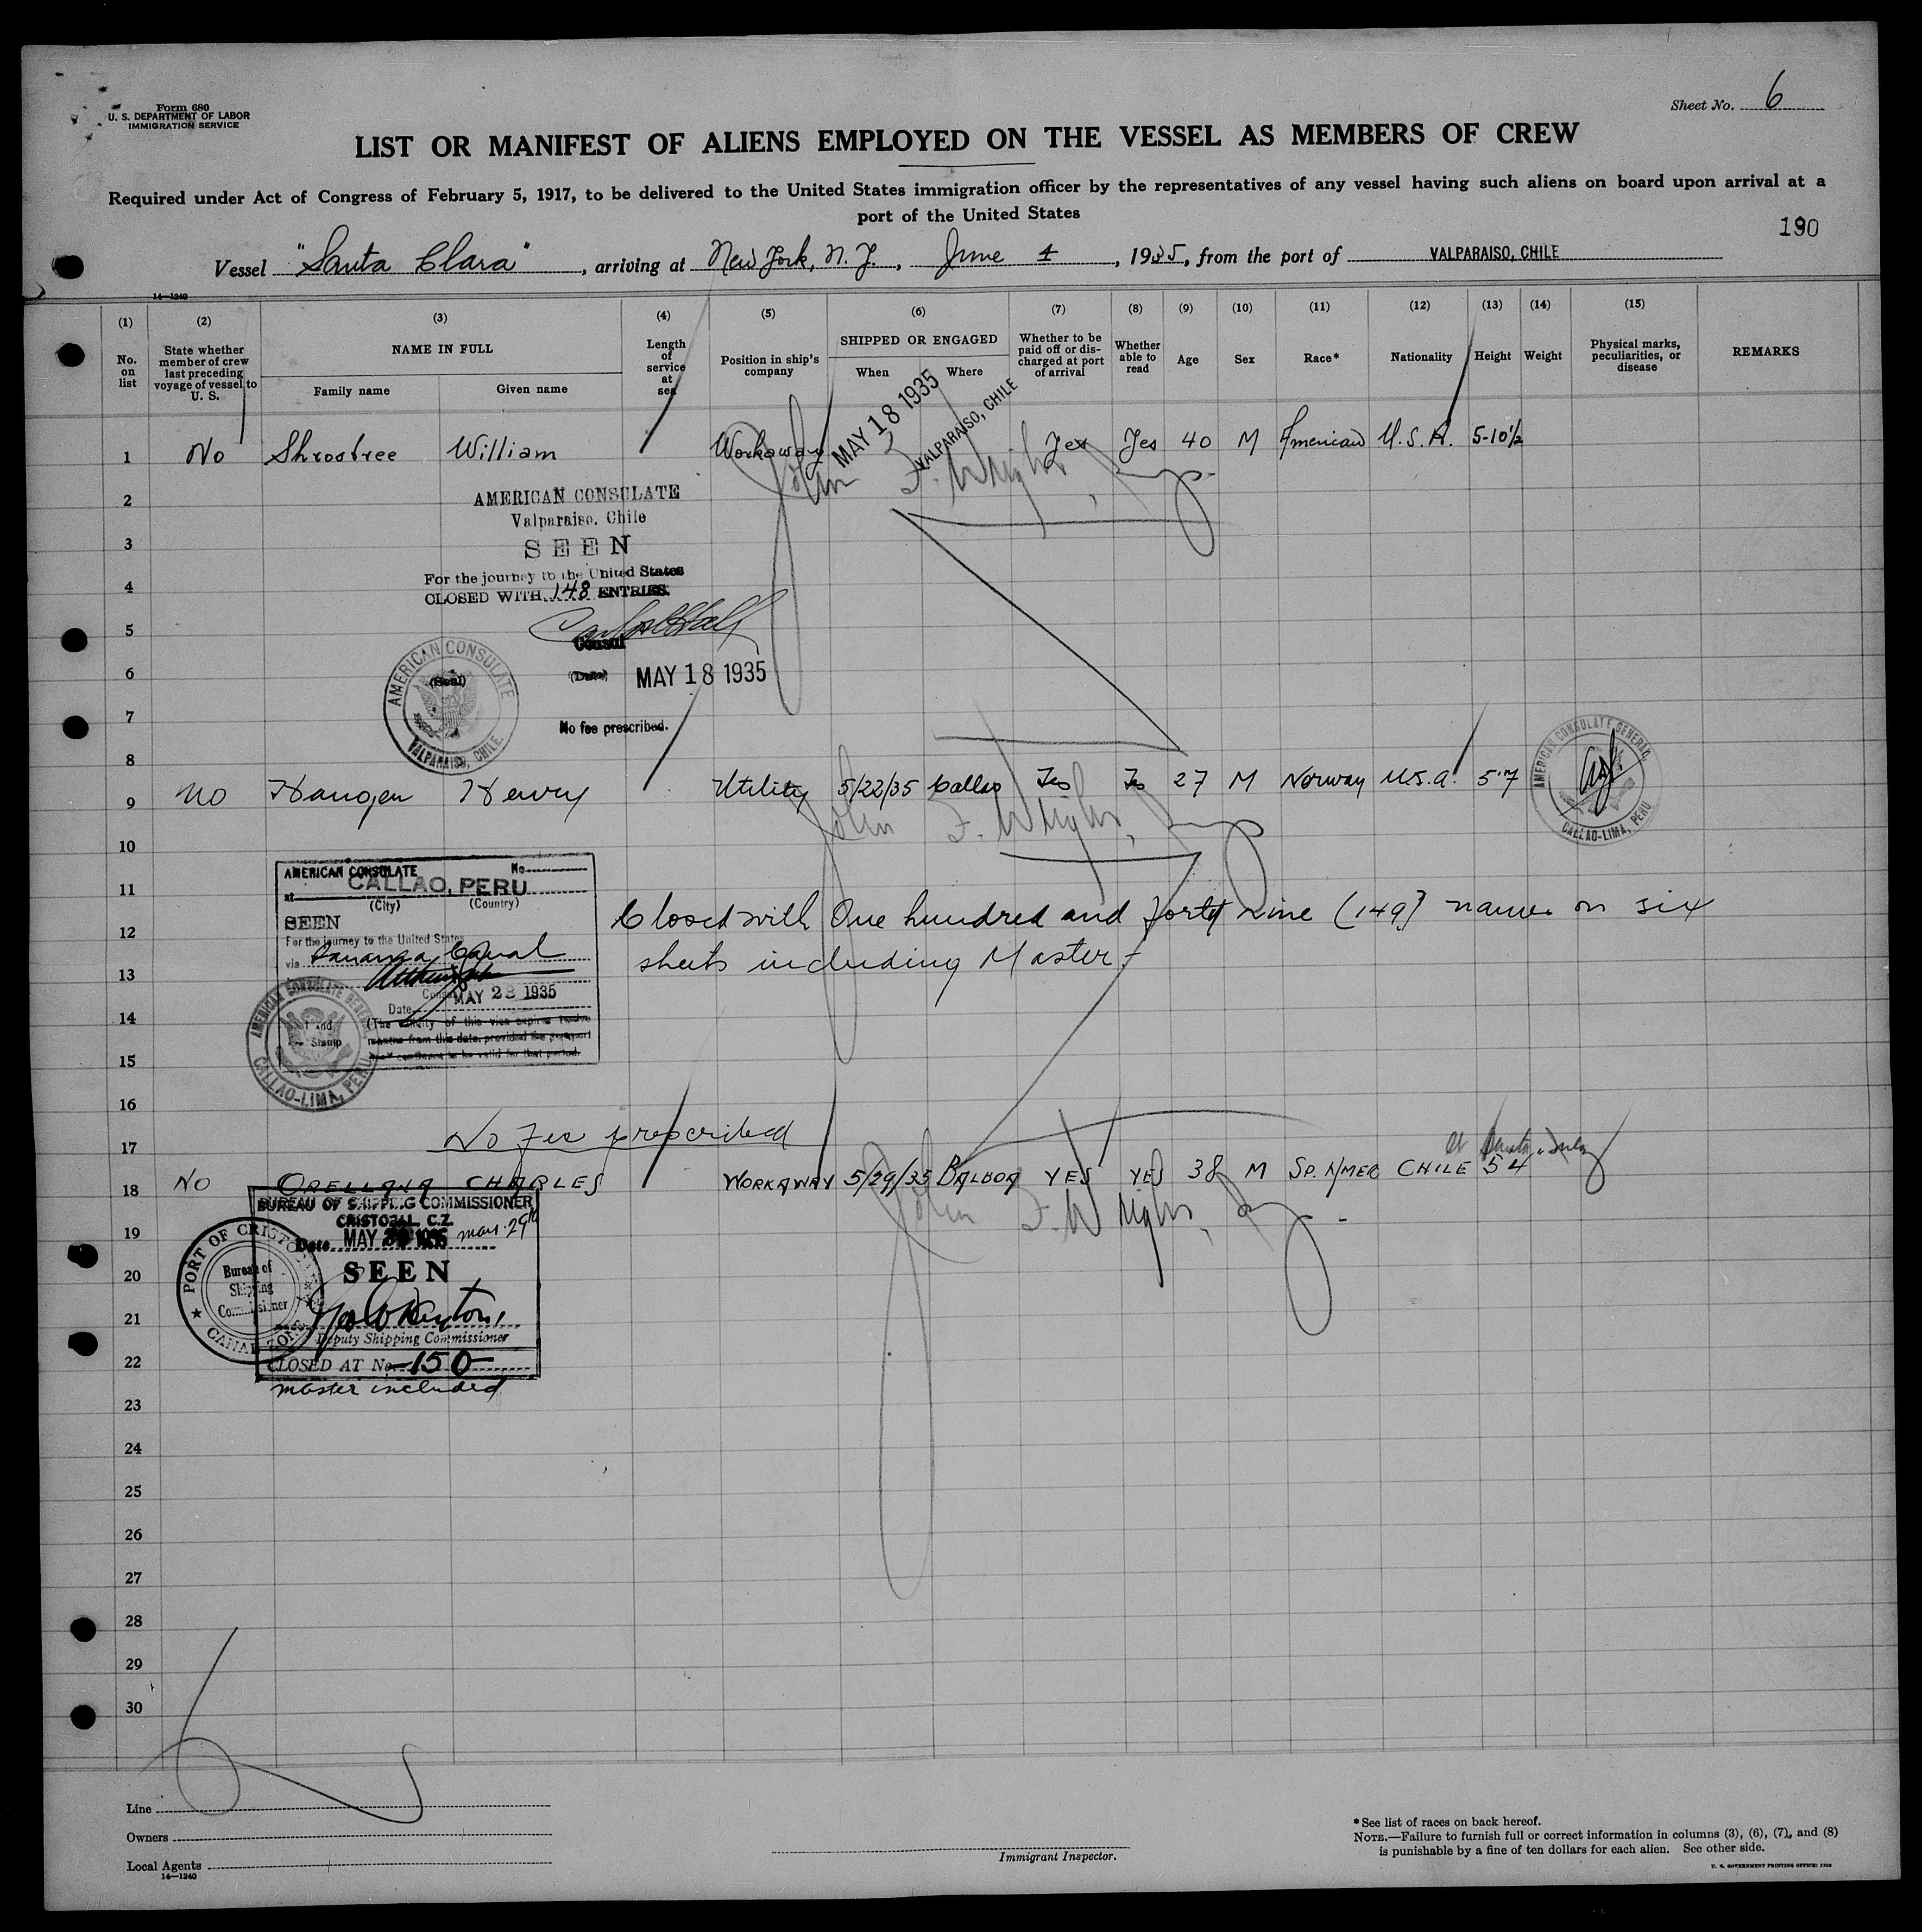 Form 680
U. S. DEPARTMENT OF LABOR
IMMIGRATION SERVICE
Sheet No. 6
LIST OR MANIFEST OF ALIENS EMPLOYED ON THE VESSEL AS MEMBERS OF CREW
Required under Act of Congress of February 5, 1917, to be delivered to the United States immigration officer by the representatives of any vessel having such aliens on board upon arrival at a
port of the United States
190
Vessel "Santa Clara", arriving at New York, N. Y., June 4, 1935, from the port of VALPARAISO, CHILE
14—1240
(1) (2) (3) (4) (5) (6) (7) (8) (9) (10) (11) (12) (13) (14) (15)
No. on list
State whether member of crew last preceding voyage of vessel to U. S.
NAME IN FULL
Family name Given name
Length of service at sea
Position in ship's company
SHIPPED OR ENGAGED
When Where
Whether to be paid off or discharged at port of arrival
Whether able to read
Age Sex Race* Nationality Height Weight
Physical marks, peculiarities, or disease
REMARKS
1 No Shrosbree William Workaway MAY 18 1935 VALPARAISO, CHILE Yes Yes 40 M American U.S.A. 5-10½
John F. Wright, 
2
AMERICAN CONSULATE
Valparaiso, Chile
3
SEEN
4
For the journey to the United States
CLOSED WITH 148 ENTRIES.
5
Consul
6
AMERICAN CONSULATE
VALPARAISO, CHILE.
(Seal)
(Date) MAY 18 1935
7
No fee prescribed.
8
9 No Haugen Henry Utility 5/22/35 Callao Yes Yes 27 M Norway U.S.A. 5'7
AMERICAN CONSULATE GENERAL
CALLAO-LIMA, PERU
John F. Wright,
10
AMERICAN CONSULATE No
11
at CALLAO, PERU
(City) (Country)
SEEN
12
Closed with One hundred and forty nine (149) names on six
sheets including Master
For the journey to the United States
via Panama Canal
13
Consul
MAY 23 1935
Date
14
(The validity of this visa expires twelve
months from this date, provided the passport
itself continues to be valid for that period.
Stamp
AMERICAN CONSULATE GENERAL
CALLAO-LIMA, PERU
15
16
No Fee prescribed
17
18 NO ORELLANA CHARLES WORKAWAY 5/29/35 BALBOA YES YES 38 M SP. AMER CHILE 5 4
John F. Wright,
BUREAU OF SHIPPING COMMISSIONER
CRISTOBAL, C.Z.
19
Date MAY
PORT OF CRISTOBAL
Bureau of
Shipping
Commissioner
CANAL ZONE
20
SEEN
21
Deputy Shipping Commissioner
22
CLOSED AT No. 150
master included
23
24
25
26
27
28
29
30
Line
Owners
Local Agents
14—1240
Immigrant Inspector.
*See list of races on back hereof.
NOTE.—Failure to furnish full or correct information in columns (3), (6), (7), and (8)
is punishable by a fine of ten dollars for each alien. See other side.